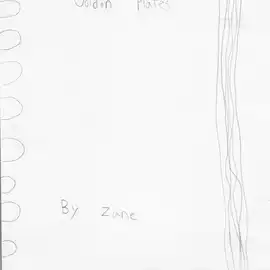 Goldin Plates
By Zane